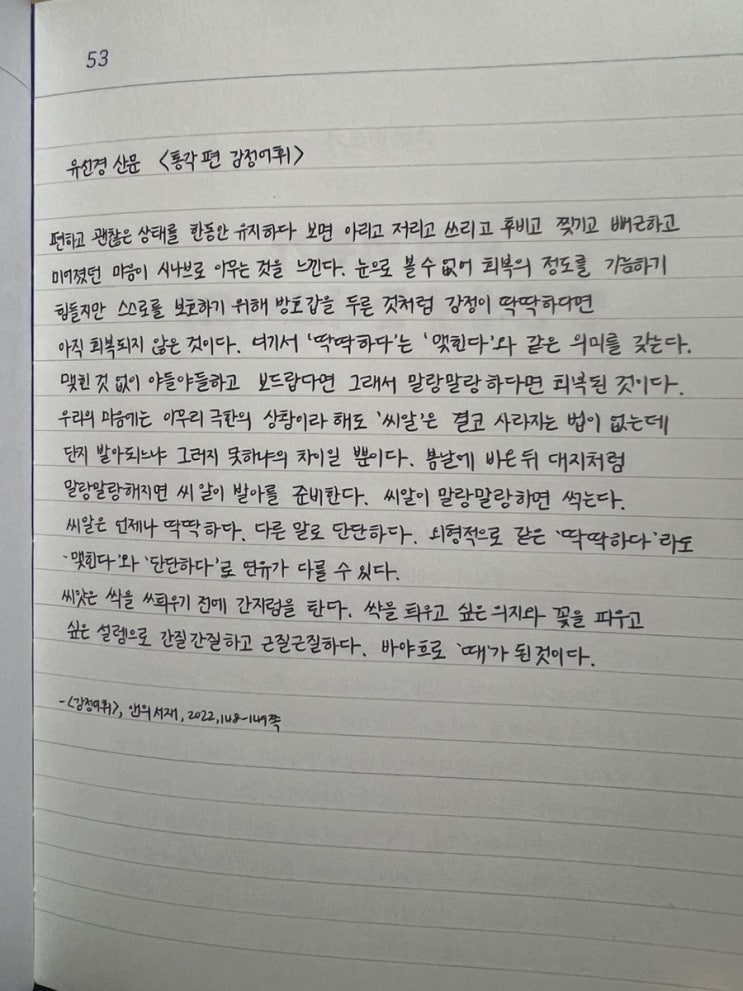 53
유선경 산문 <통각 편 감정어휘>
편하고 괜찮은 상태를 한동안 유지하다 보면 아리고 저리고 쓰리고 후비고 찢기고 뻐근하고
미어졌던 마음이 시나브로 아무는 것을 느낀다. 눈으로 볼 수 없어 회복의 정도를 가늠하기
힘들지만 스스로를 보호하기 위해 방호갑을 두른 것처럼 감정이 딱딱하다면
아직 회복되지 않은 것이다. 여기서 '딱딱하다'는 '맺힌다'와 같은 의미를 갖는다.
맺힌 것 없이 야들야들하고 보드랍다면 그래서 말랑말랑하다면 회복된 것이다.
우리의 마음에는 아무리 극한의 상황이라 해도 '씨알'은 결코 사라지는 법이 없는데
단지 발아되느냐 그러지 못하냐의 차이일 뿐이다. 봄날에 비온 뒤 대지처럼
말랑말랑해지면 씨알이 발아를 준비한다. 씨알이 말랑말랑하면 썩는다.
씨알은 언제나 딱딱하다. 다른 말로 단단하다. 외형적으로 같은 '딱딱하다'라도
'맺힌다'와 '단단하다'로 연유가 다를 수 있다.
씨앗은 싹을 틔우기 전에 간지럼을 탄다. 싹을 틔우고 싶은 의지와 꽃을 피우고
싶은 설렘으로 간질간질하고 근질근질하다. 바야흐로 '때'가 된 것이다.
-<감정어휘>, 앤의서재, 2022, 148-149쪽